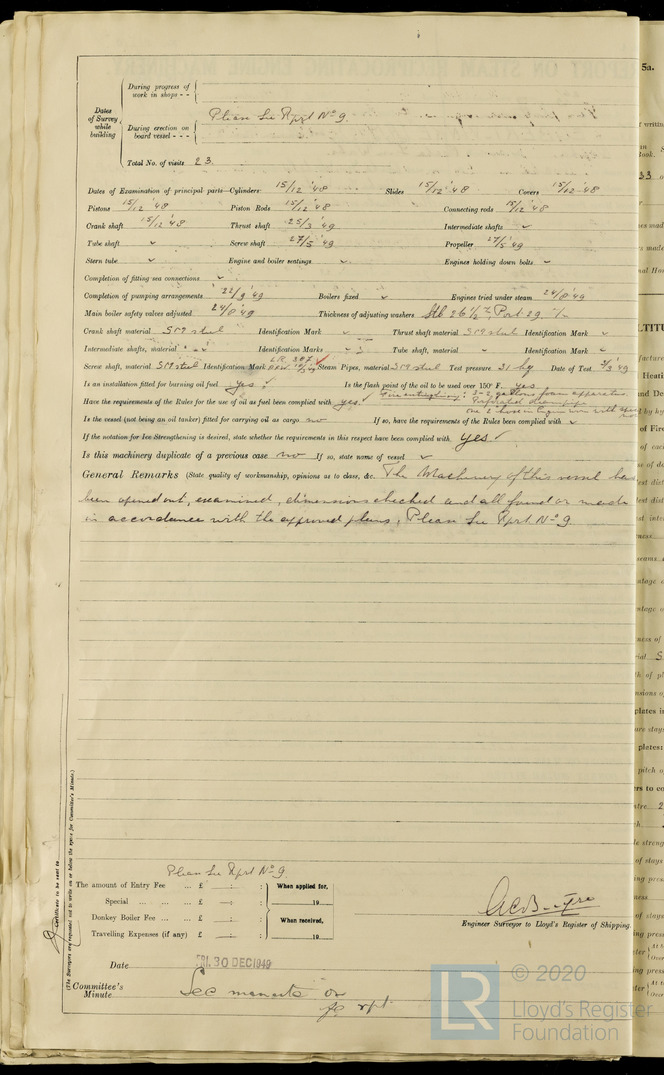 During progress of work in shops - -
Dates of Survey while building
Please See Rprt No 9.
During erection on board vessel - - -
Total No. of visits 23.
Dates of Examination of principal parts—Cylinders 15/12 '48 Slides 15/12 '48 Covers 15/12 '48
Pistons 15/12 '48 Piston Rods 15/12 '48 Connecting rods 15/12 '48
Crank shaft 15/12 '48 Thrust shaft 25/3 '49 Intermediate shafts ✓
Tube shaft ✓ Screw shaft 27/5 '49 Propeller 27/5 '49
Stern tube ✓ Engine and boiler seatings ✓ Engines holding down bolts ✓
Completion of fitting sea connections ✓
Completion of pumping arrangements 22/9 '49 Boilers fixed ✓ Engines tried under steam 24/8 '49
Main boiler safety valves adjusted 24/8 '49 Thickness of adjusting washers Stb 26 Port 29
Crank shaft material SM steel Identification Mark ✓ Thrust shaft material SM steel Identification Mark ✓
Intermediate shafts, material ✓ Identification Marks ✓ Tube shaft, material ✓ Identification Mark ✓
Screw shaft, material SM steel Identification Mark LR 307 Steam Pipes, material SM steel Test pressure 31 kg Date of Test 3/3 '49
Is an installation fitted for burning oil fuel yes ✓ Is the flash point of the oil to be used over 150° F. yes
Have the requirements of the Rules for the use of oil as fuel been complied with yes ✓ Fire extinguishing: 3-2 gallons foam apparatus
one 2" hose in Engine room with
Is the vessel (not being an oil tanker) fitted for carrying oil as cargo no If so, have the requirements of the Rules been complied with ✓
If the notation for Ice Strengthening is desired, state whether the requirements in this respect have been complied with yes ✓
Is this machinery duplicate of a previous case no If so, state name of vessel ✓
General Remarks (State quality of workmanship, opinions as to class, &c. The Machinery of this vessel has
been opened out, examined, dimensions checked and all found or made
in accordance with the approved plans, Please See Rprt No 9
Certificate to be sent to
(The Surveyors are requested not to write on or below the space for Committee's Minute.)
Please See Rprt No 9.
The amount of Entry Fee ... £ : : When applied for,
Special ... ... ... £ : : 19
Donkey Boiler Fee ... ... £ : : When received,
Travelling Expenses (if any) £ : : 19
Engineer Surveyor to Lloyd's Register of Shipping.
Date FRI. 30 DEC 1949
Committee's Minute See minute on
rpt
LR © 2020
Lloyd's Register
Foundation
5a.